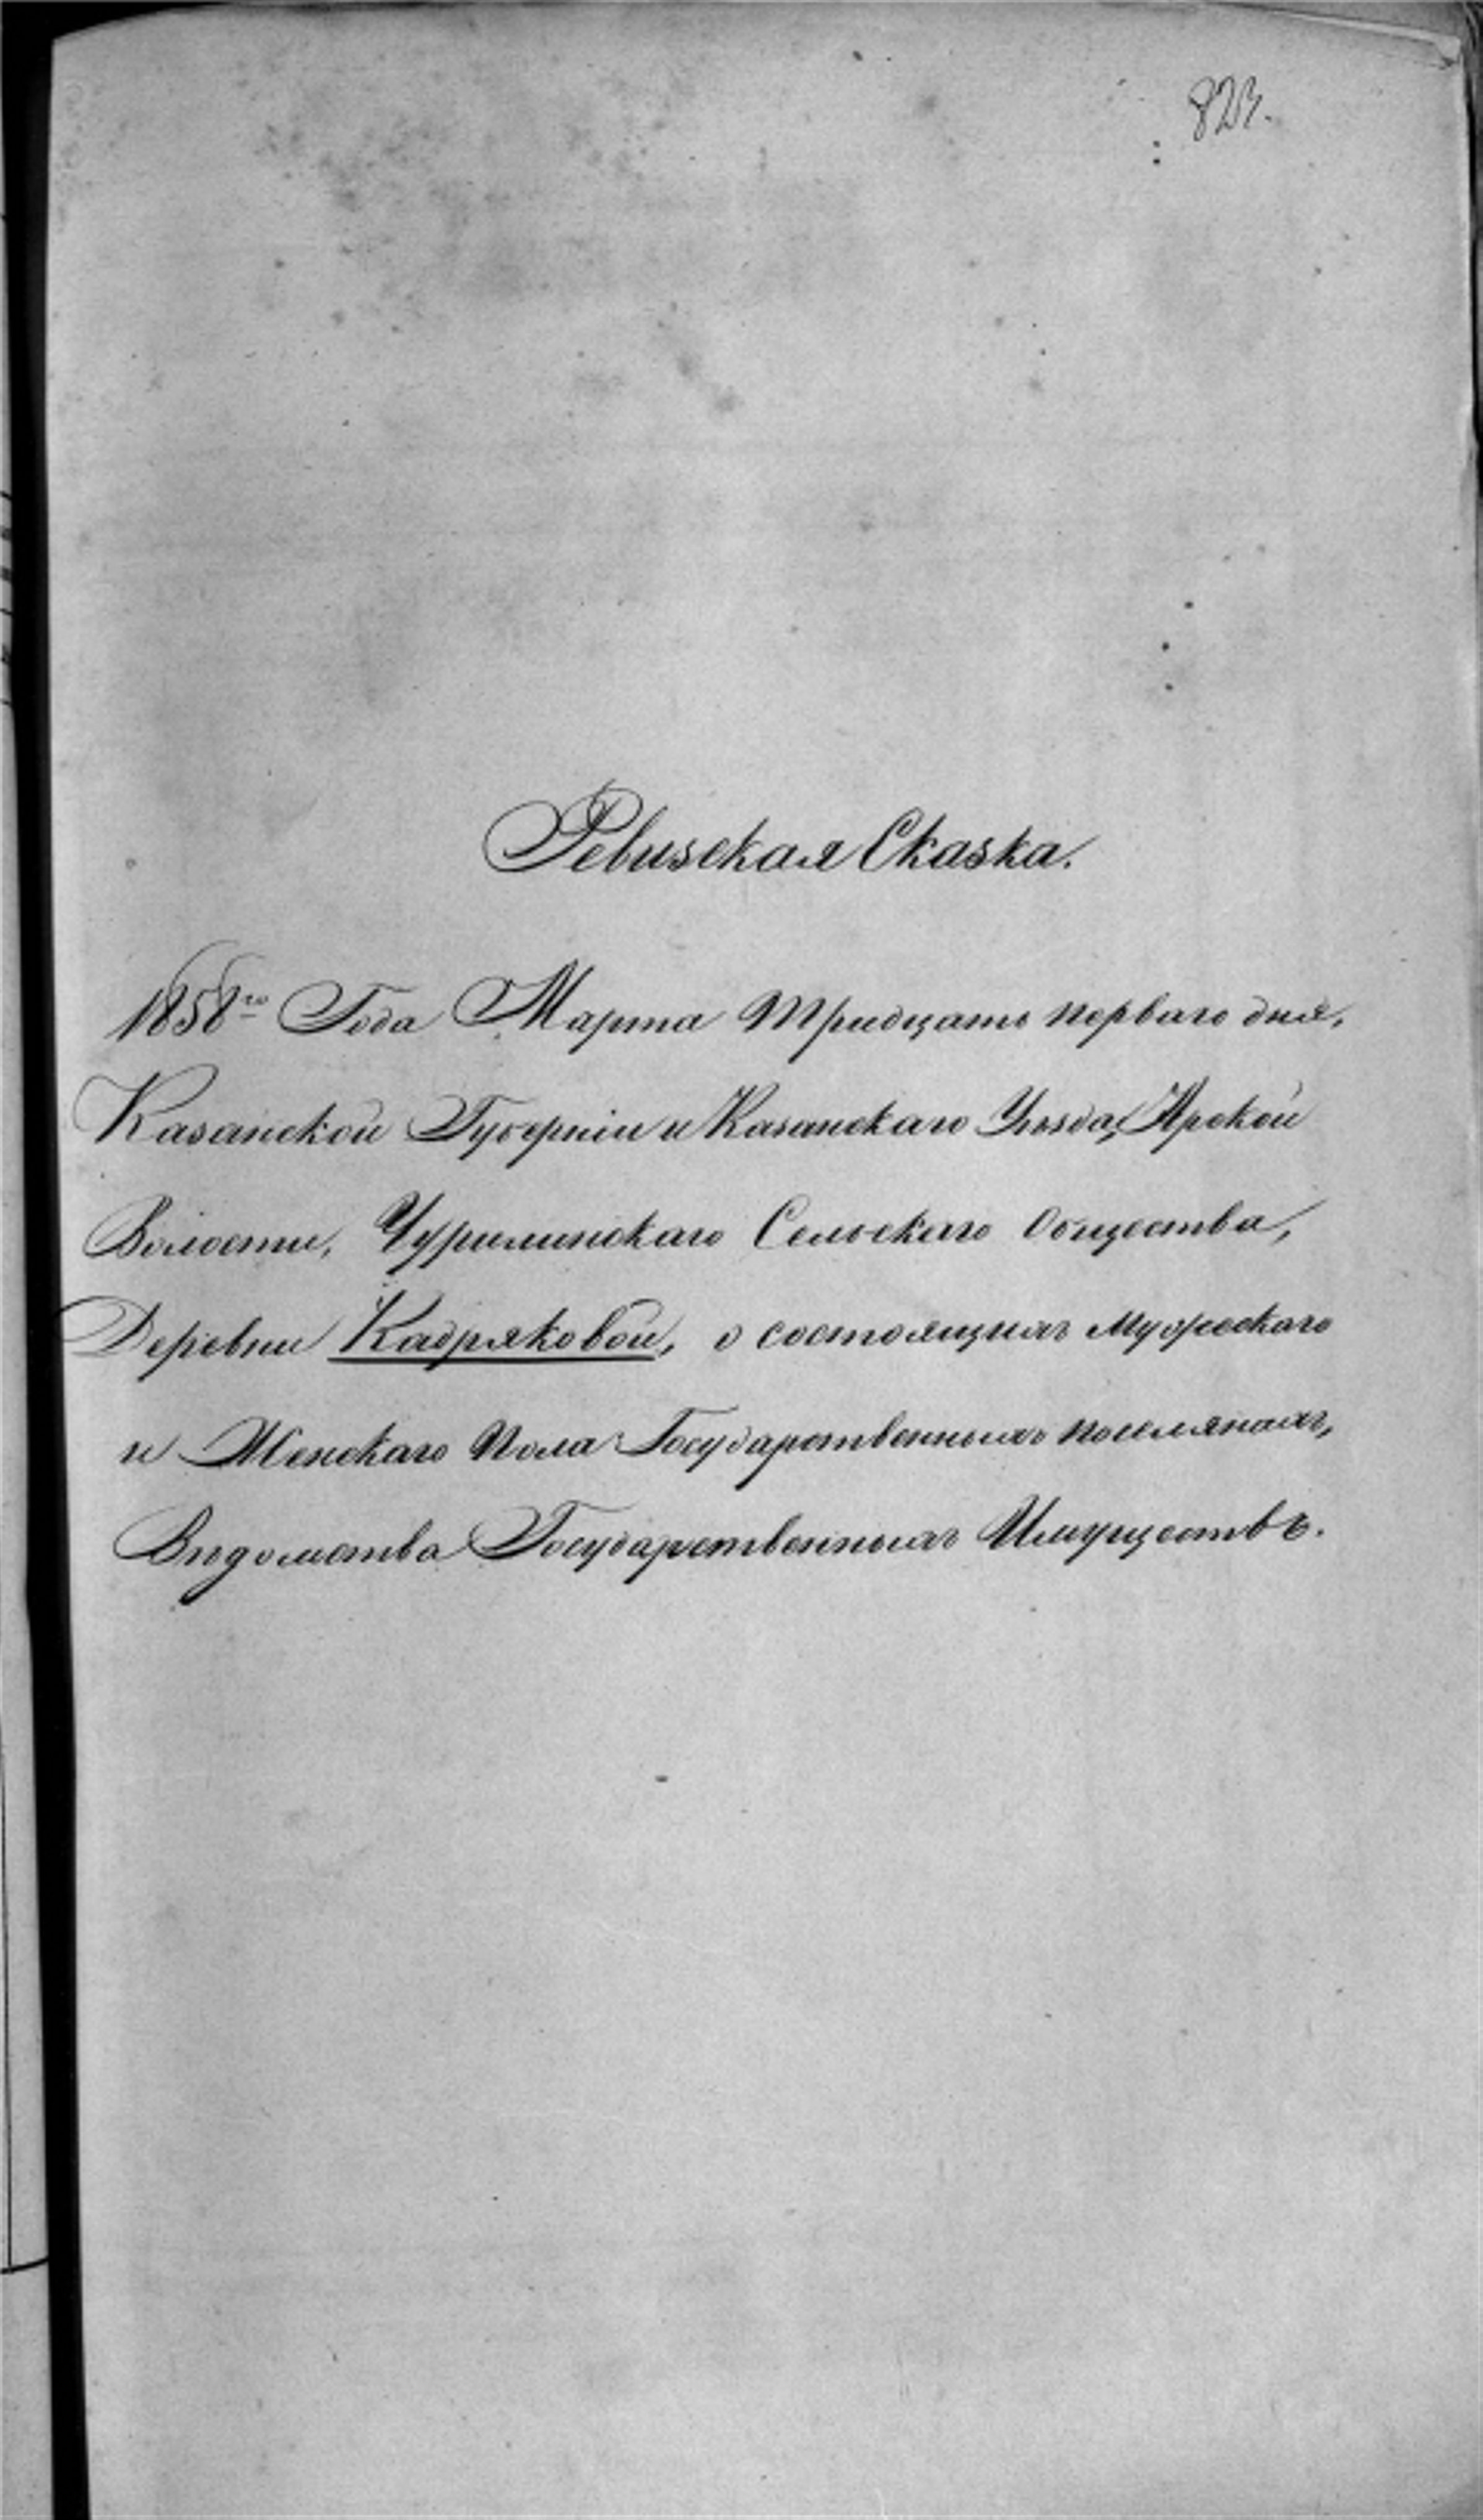 823.
Ревизская Сказка.
1858го Года Марта Тридцать перваго дня,
Казанской Губерніи и Казанскаго Уѣзда, Арской
Волости, Чурилинскаго Сельскаго Общества,
Деревни Кадряковой, о состоящихъ мужескаго
и Женскаго Пола Государственныхъ поселянахъ,
Вѣдомства Государственныхъ Имуществъ.